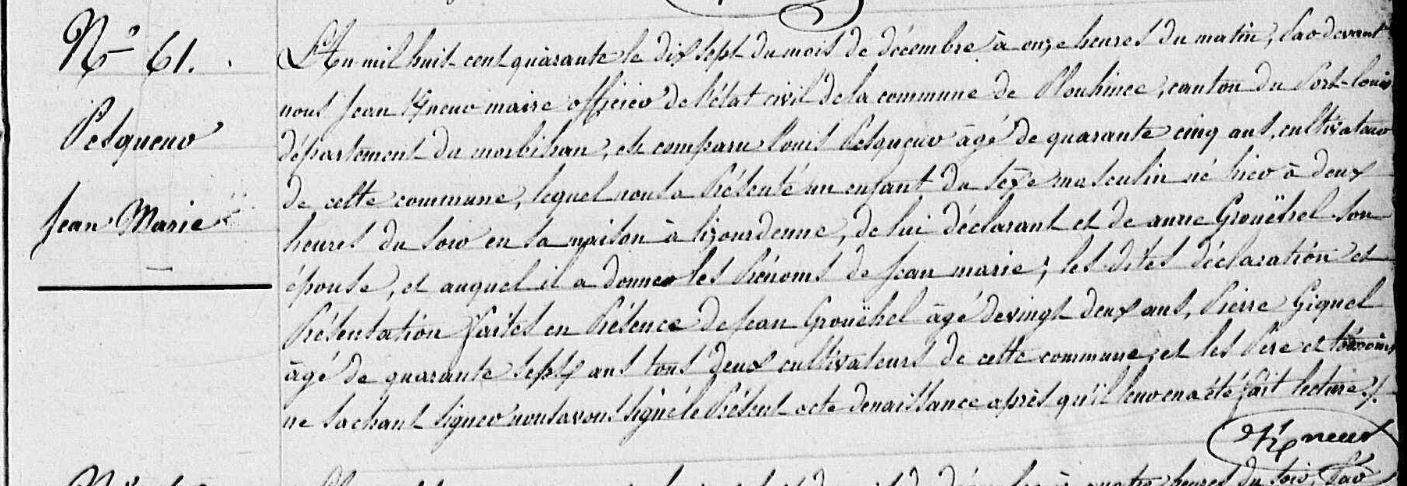 N° 61.
Pesqueur
Jean Marie
L'An mil huit cent quarante le dix sept du mois de décembre à onze heures du matin, Par devant
nous Jean Kneur maire officier de l'état civil de la commune de Plouhinec, canton du Port-Louis
département du morbihan, est comparu Louis Pesqueur âgé de quarante cinq ans, cultivateur
de cette commune, lequel nous a Présenté un enfant du sexe masculin né hier à deux
heures du soir en sa maison à , de lui déclarant et de anne Grouëhel son
épouse, et auquel il a donner les Prénoms de Jean marie; les dites déclaration et
Présentation faites en Présence de Jean Grouëhel âgé de vingt deux ans, Pierre Giquel
âgé de quarante sept ans tous deux cultivateurs de cette commune; et les Père et témoins
ne sachant signer nous avons signé le Présent acte de naissance après qu'il leur en a été fait lecture.
Kneur